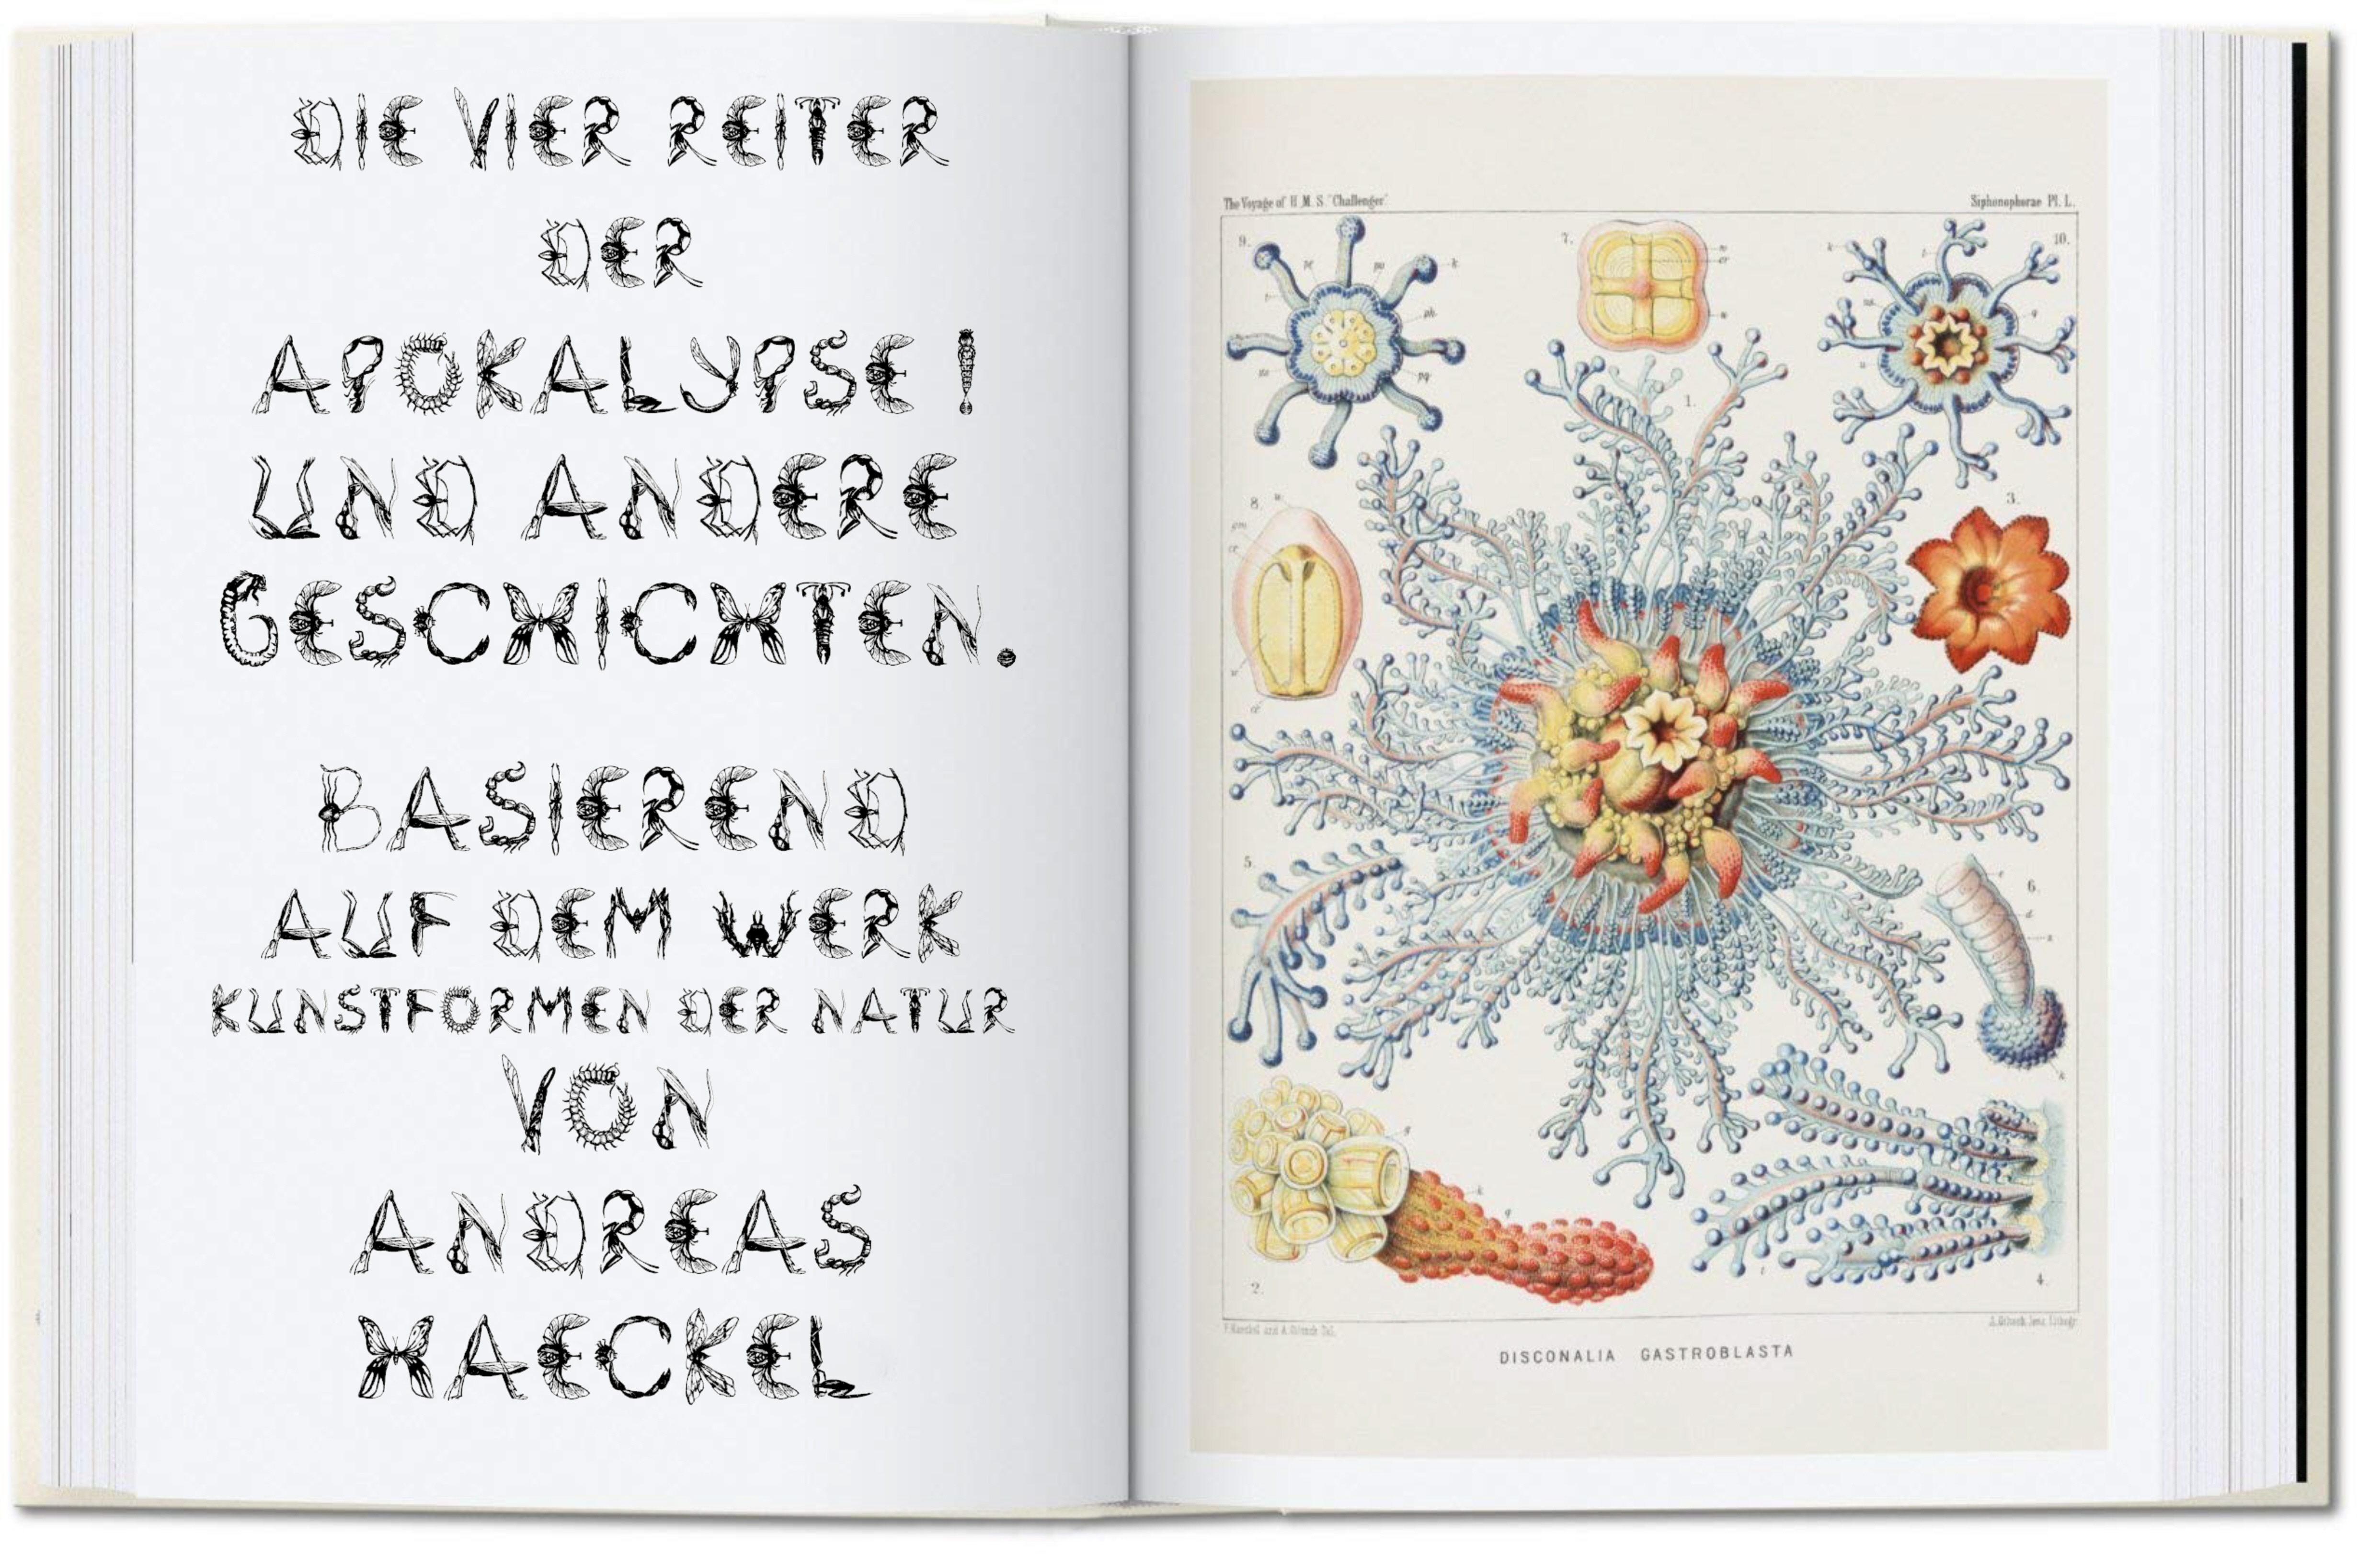 DIE VIER REITER
DER
APOKALYPSE !
UND ANDERE
GESCHICHTEN.
BASIEREND
AUF DEM WERK
KUNSTFORMEN DER NATUR
VON
ANDREAS
HAECKEL
The Voyage of H.M.S. "Challenger."
Siphonophorae Pl. L.
9.
7.
10.
1.
8.
3.
5.
6.
2.
4.
DISCONALIA GASTROBLASTA